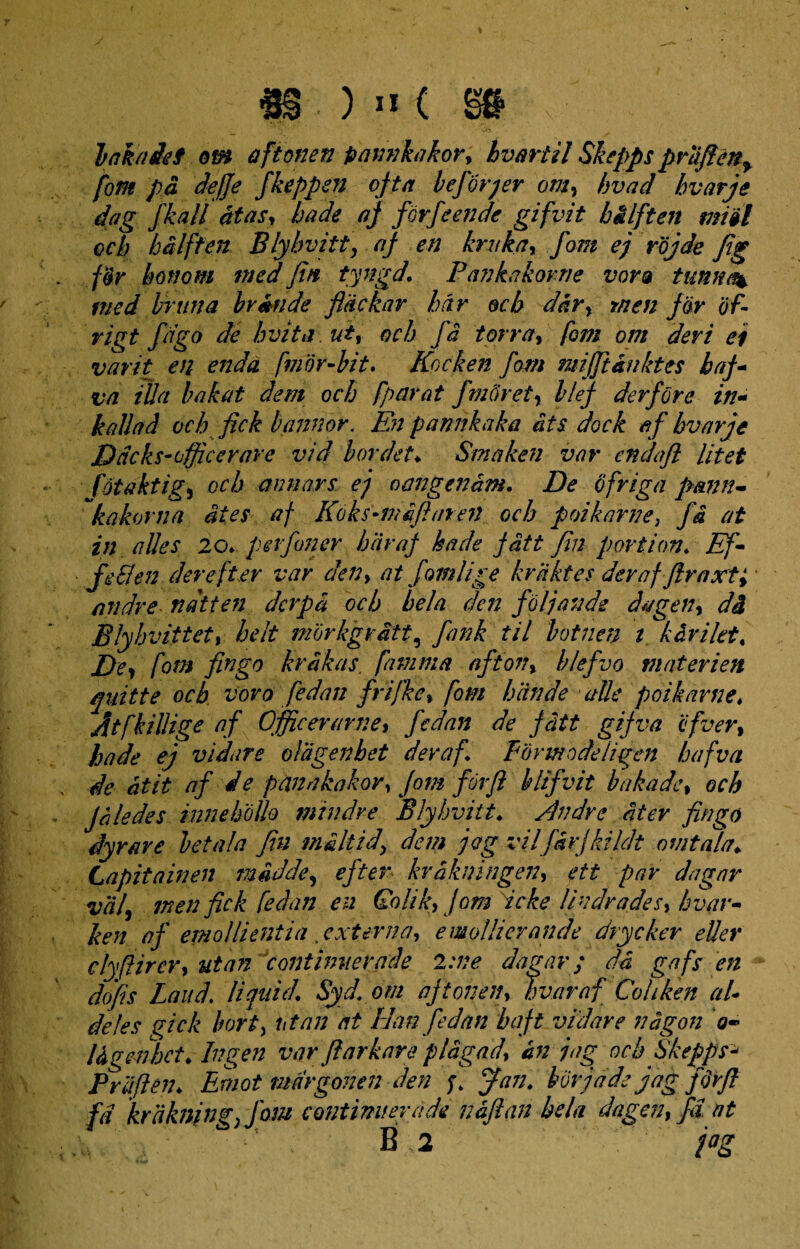 ) 11 (
bakades om aftonen pannkakor, hvartil Skepps präſten,
ſom på deſſe ſkeppen ofta beſörjer om, hvad hvarje
dag ſkall ätas, hade af förſeende gifvit hälften miöl
och hälften Blyhvitt, af en kruka, ſom ej röjde ſig
för honom med ſin tyngd. Pankakorne voro tunna,
med bruna brände fläckar här och där, men för öf-
rigt ſågo de hvita ut, och ſå torra, ſom om deri ej
varit en enda ſmör-bit. Kocken ſom miſſtänktes haf-
va illa bakat dem och ſparat ſmöret, blef derföre in-
kallad och fick bannor. En pannkaka äts dock af hvarje
Däcks-officerare vid bordet. Smaken var endaſt litet
ſötaktig, och annars ej oangenäm. De öfriga pann-
kakorna ätes af Koks-mäſtaren och poikarne, ſå at
in alles 20. perſoner häraf hade fått ſin portion. Ef-
fecten derefter var den, at ſomlige kräktes deraf ſtraxt;
andre natten derpå och hela den följande dagen, då
Blyhvittet, helt mörkgrått, ſank til botnen i kärilet.
De, ſom fingo kräkas ſamma afton, blefvo materien
quitte och voro ſedan friſke, ſom hände alle poikarne.
Åtſkillige af Officerarne, ſedan de fått gifva öfver,
hade ej vidare olägenhet deraf. Förmodeligen hafva
de ätit af de pannkakor, ſom förſt blifvit bakade, och
ſåledes innehöllo mindre Blyhvitt. Andre åter fingo
dyrare betala ſin måltid, dem jag vil färſkildt omtala.
Capitainen mådde, efter kräkningen, ett par dagar
väl, men fick ſedan en Colik, ſom icke lindrades, hvar-
ken af emollientia externa, emollierande drycker eller
clyſtirer, utan continuerade 2:ne dagar; då gafs en
doſis Laud. liquid. Syd. om aftonen, hvaraf Coliken al-
deles gick bort, utan at Han ſedan haft vidare någon o-
lägenhet. Ingen var ſtarkare plågad, än jag och Skepps-
Präſten. Emot märgonen den 5. Jan. började jag förſt
få kräkning, ſom continuerade näſtan hela dagen, ſå at
B 2 jag